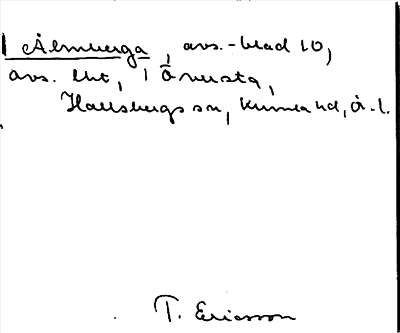 Älmberga, avs.-blad 10,
avs. lht, i Översta,
Hallsbergs sn, Kumla hd, Ö. l.
T. Ericsson